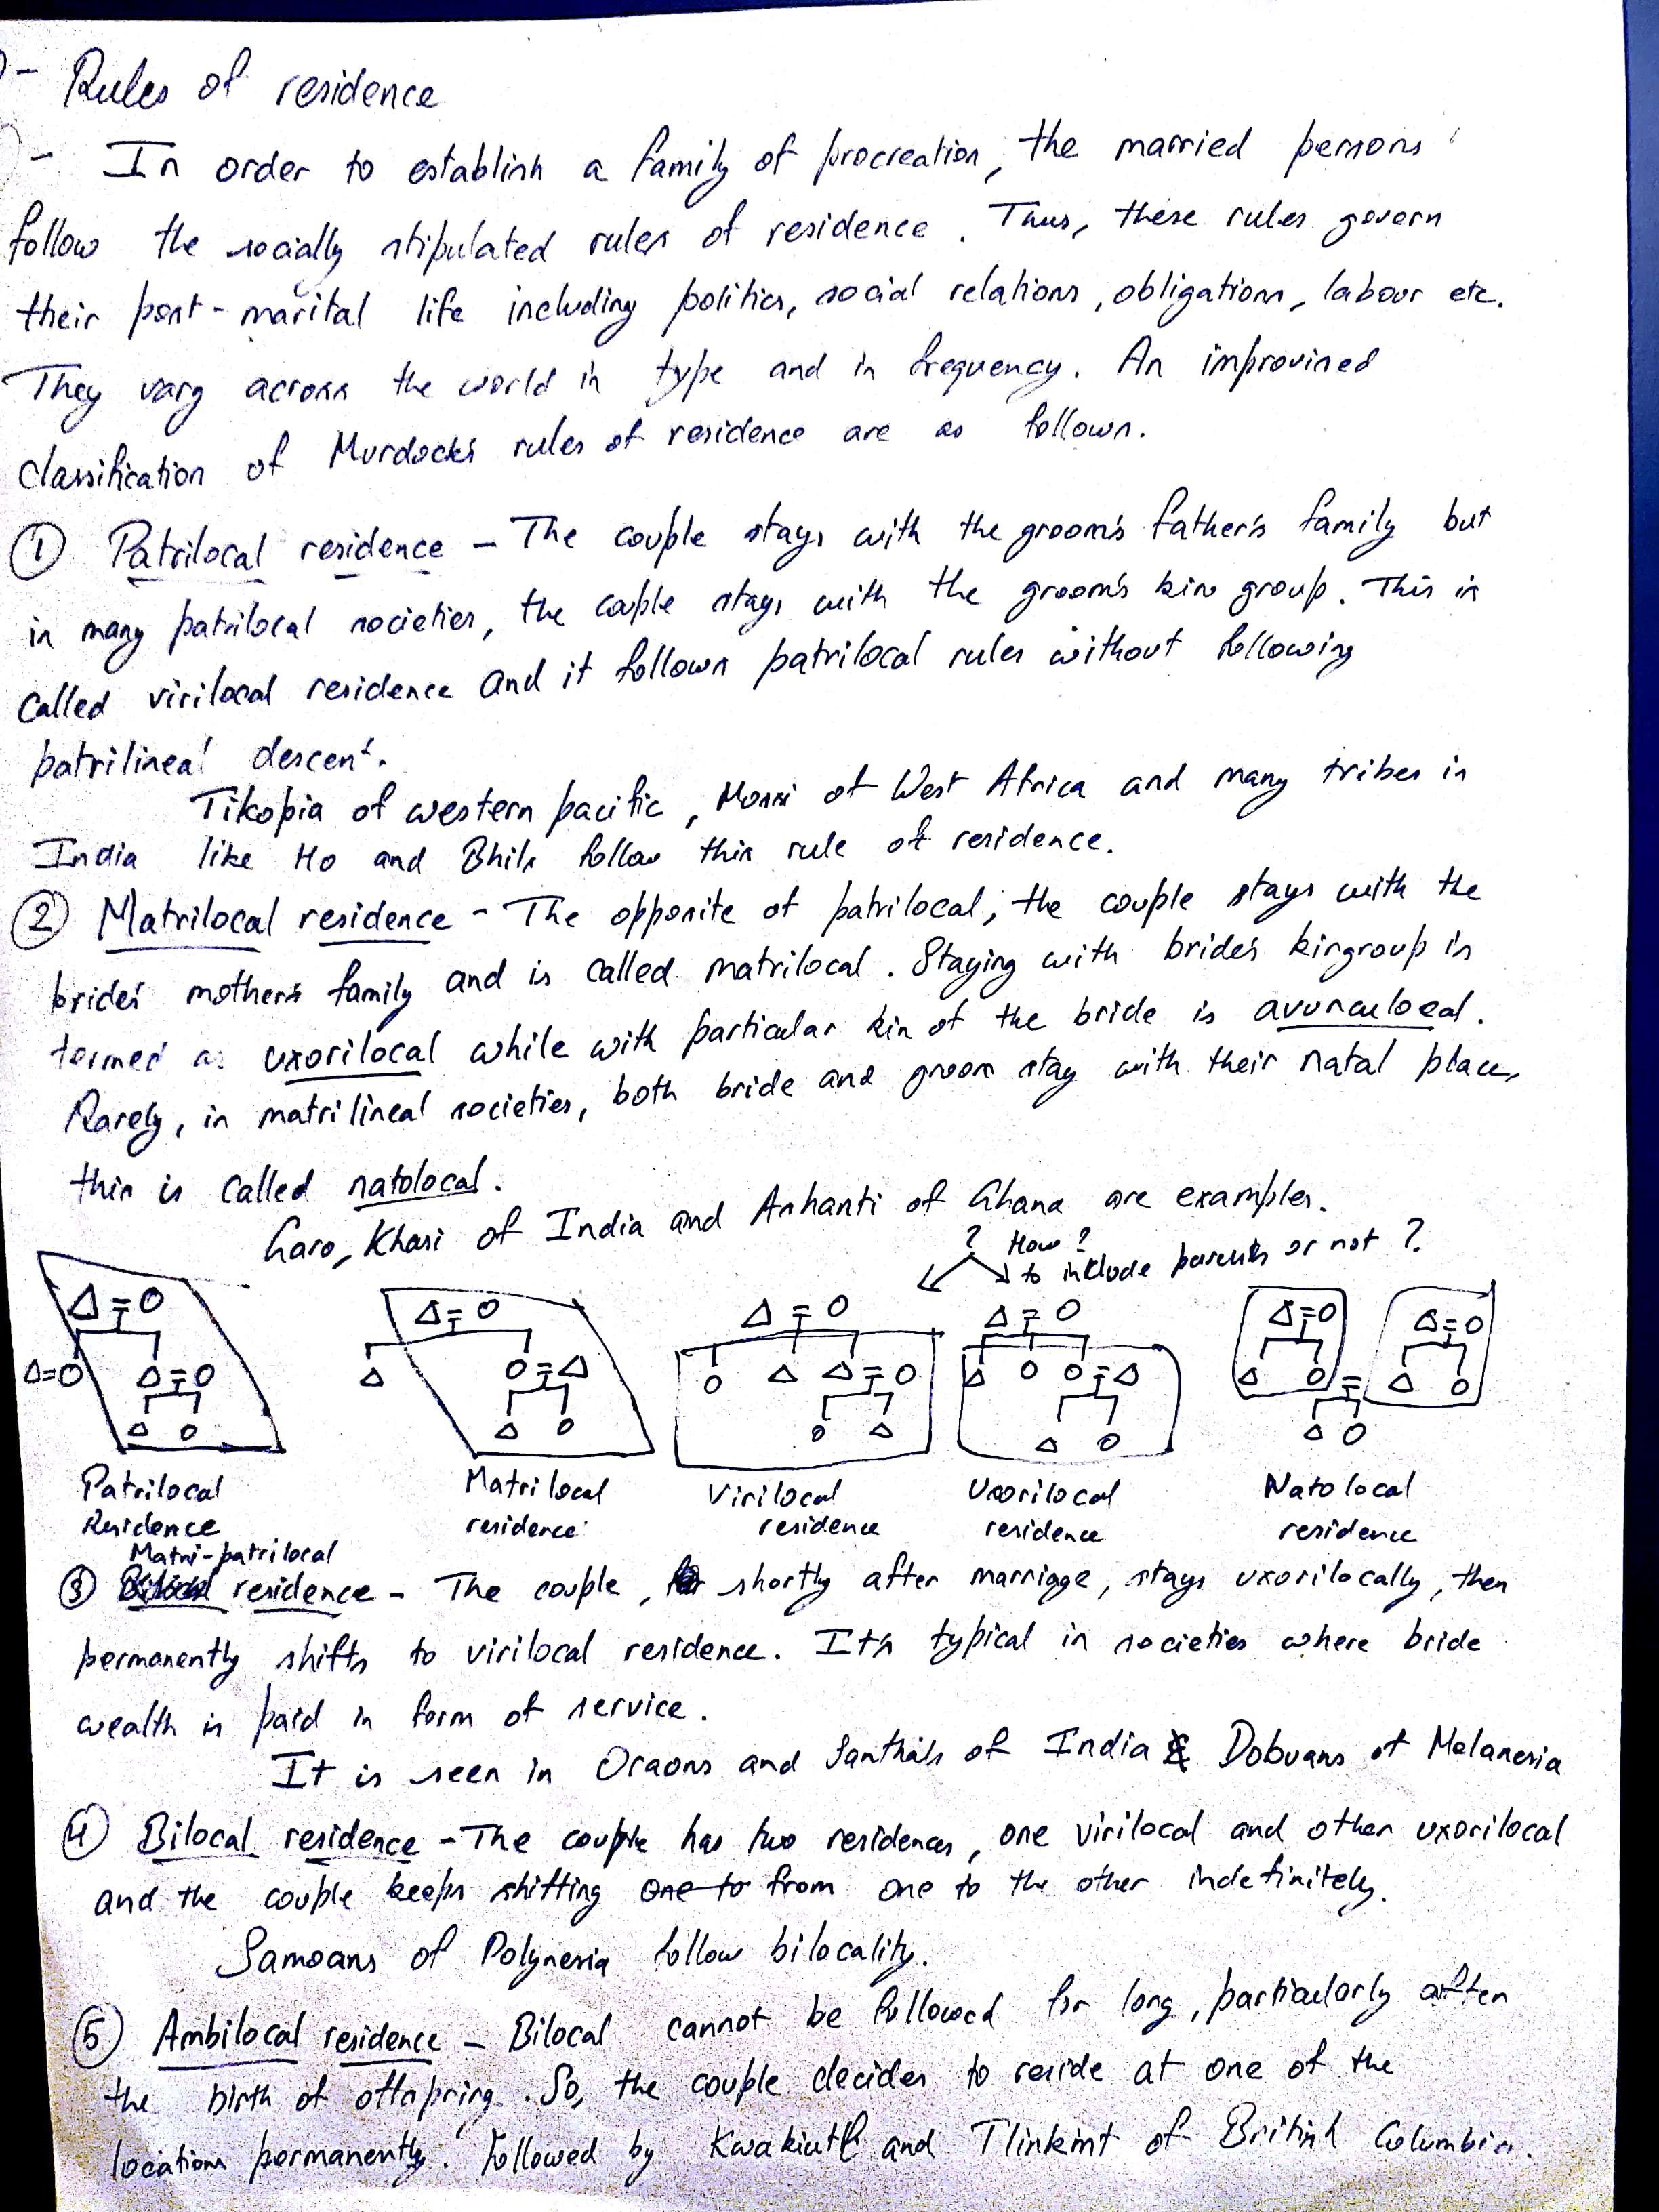 - Rules of residence
- In order to establish a family of procreation, the married persons
follow the socially stipulated rules of residence. Thus, these rules govern
their post-marital life including politics, social relations, obligations, labour etc.
They vary across the world in type and in frequency. An improvised
classification of Murdock's rules of residence are as follows.
① Patrilocal residence - The couple stays with the groom's father's family but
in many patrilocal societies, the couple stays with the groom's kin group. This is
called virilocal residence and it follows patrilocal rules without following
patrilineal descent.
Tikopia of western pacific, Mossi of West Africa and many tribes in
India like Ho and Bhils follow this rule of residence.
② Matrilocal residence - The opposite of patrilocal, the couple stays with the
brides' mother's family and is called matrilocal. Staying with bride's kingroup is
termed as uxorilocal while with particular kin of the bride is avunculocal.
Rarely, in matrilineal societies, both bride and groom stay with their natal place,
this is called natolocal.
Garo, Khasi of India and Ashanti of Ghana are examples.
? How?
to include parents or not ?
Δ = O Δ = O Δ = O Δ = O Δ=O Δ=O
Δ=O Δ=O Δ O=Δ O Δ Δ=O Δ O O=Δ Δ O = Δ O
Δ O Δ O O Δ Δ O Δ O
Patrilocal Matrilocal Virilocal Uxorilocal Natolocal
Residence residence residence residence residence
Matri-patrilocal
③ residence - The couple, shortly after marriage, stays uxorilocally, then
permanently shifts to virilocal residence. It's typical in societies where bride
wealth is paid in form of service.
It is seen in Oraons and Santhals of India & Dobuans of Melanesia
④ Bilocal residence - The couple has two residences, one virilocal and other uxorilocal
and the couple keeps shifting one to from one to the other indefinitely.
Samoans of Polynesia follow bilocality.
⑤ Ambilocal residence - Bilocal cannot be followed for long, particularly after
the birth of offspring. So, the couple decides to reside at one of the
locations permanently. Followed by Kwakiutl and Tlinkint of British Columbia.